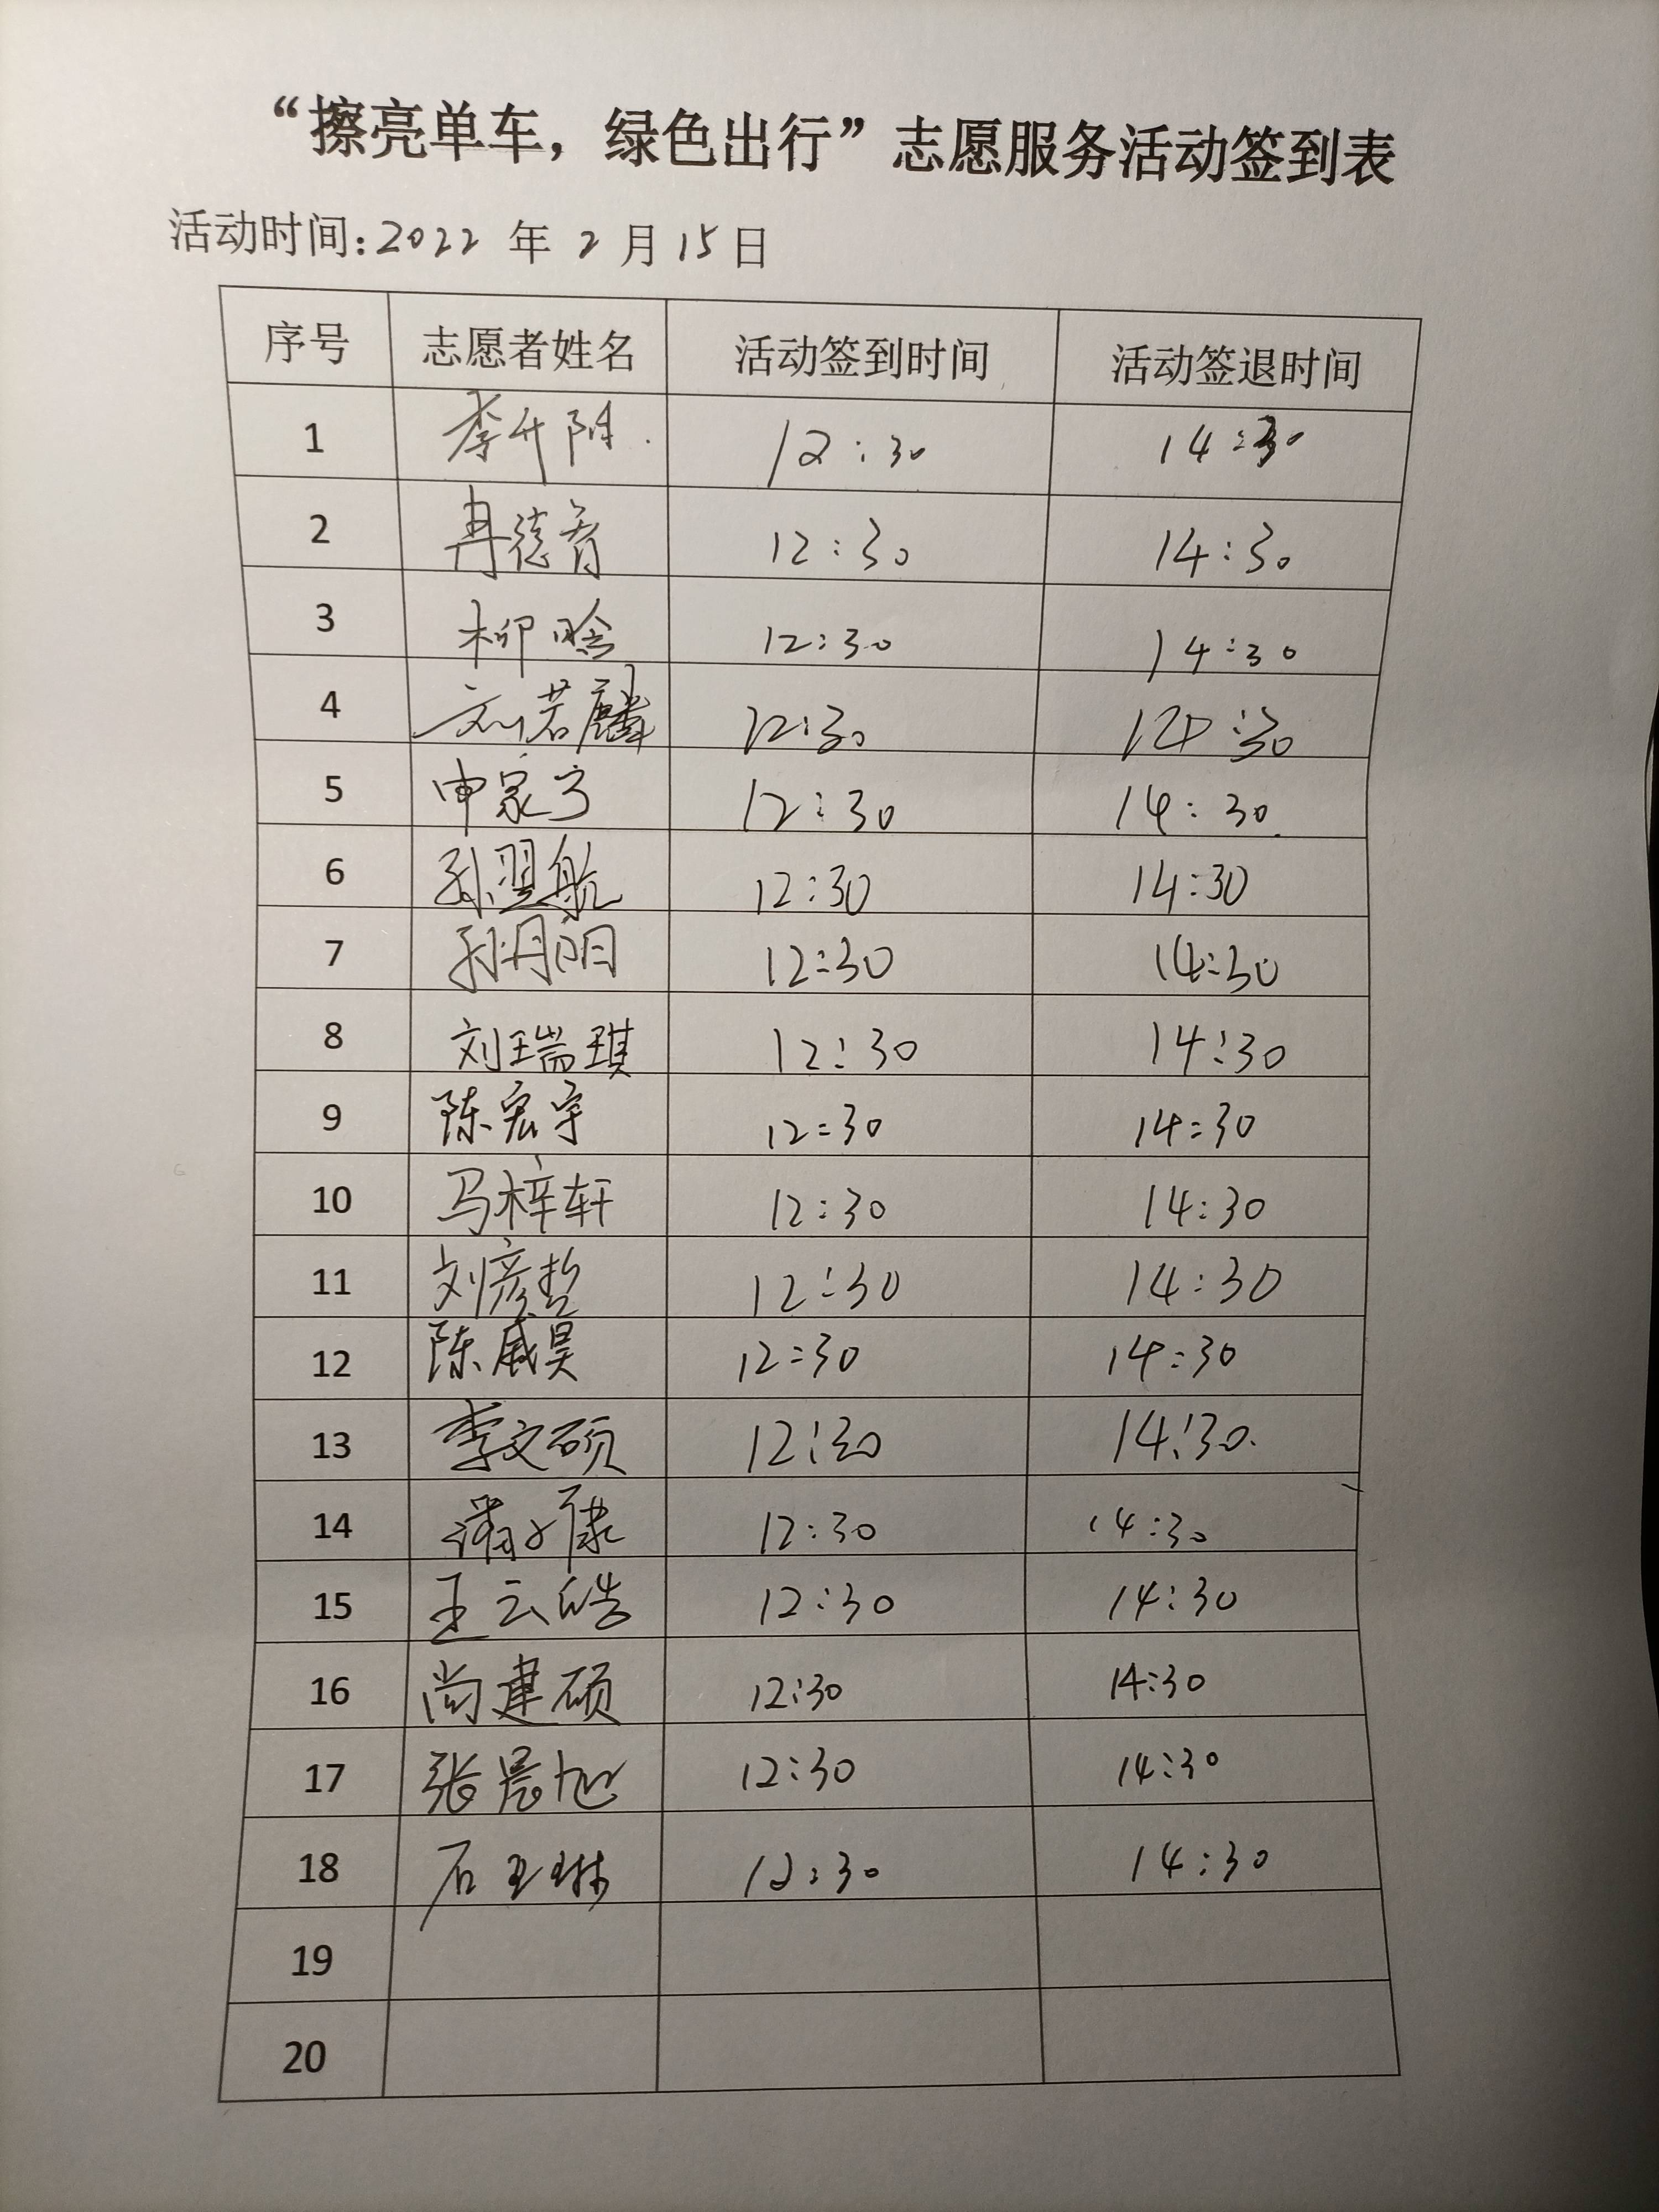 “擦亮单车，绿色出行”志愿服务活动签到表
活动时间:2022 年 2 月 15 日
序号 志愿者姓名 活动签到时间 活动签退时间
1 李升阳 12:30 14:30
2 冉德育 12:30 14:30
3 柳晗 12:30 14:30
4 刘若麟 12:30 14:30
5 申家宁 12:30 14:30
6 孙翌航 12:30 14:30
7 孙丹阳 12:30 14:30
8 刘瑞琪 12:30 14:30
9 陈宏宇 12:30 14:30
10 马梓轩 12:30 14:30
11 刘彦哲 12:30 14:30
12 陈威昊 12:30 14:30
13 李文硕 12:30 14:30
14 12:30 14:30
15 王云皓 12:30 14:30
16 尚建硕 12:30 14:30
17 张晨旭 12:30 14:30
18 石玉琳 12:30 14:30
19
20